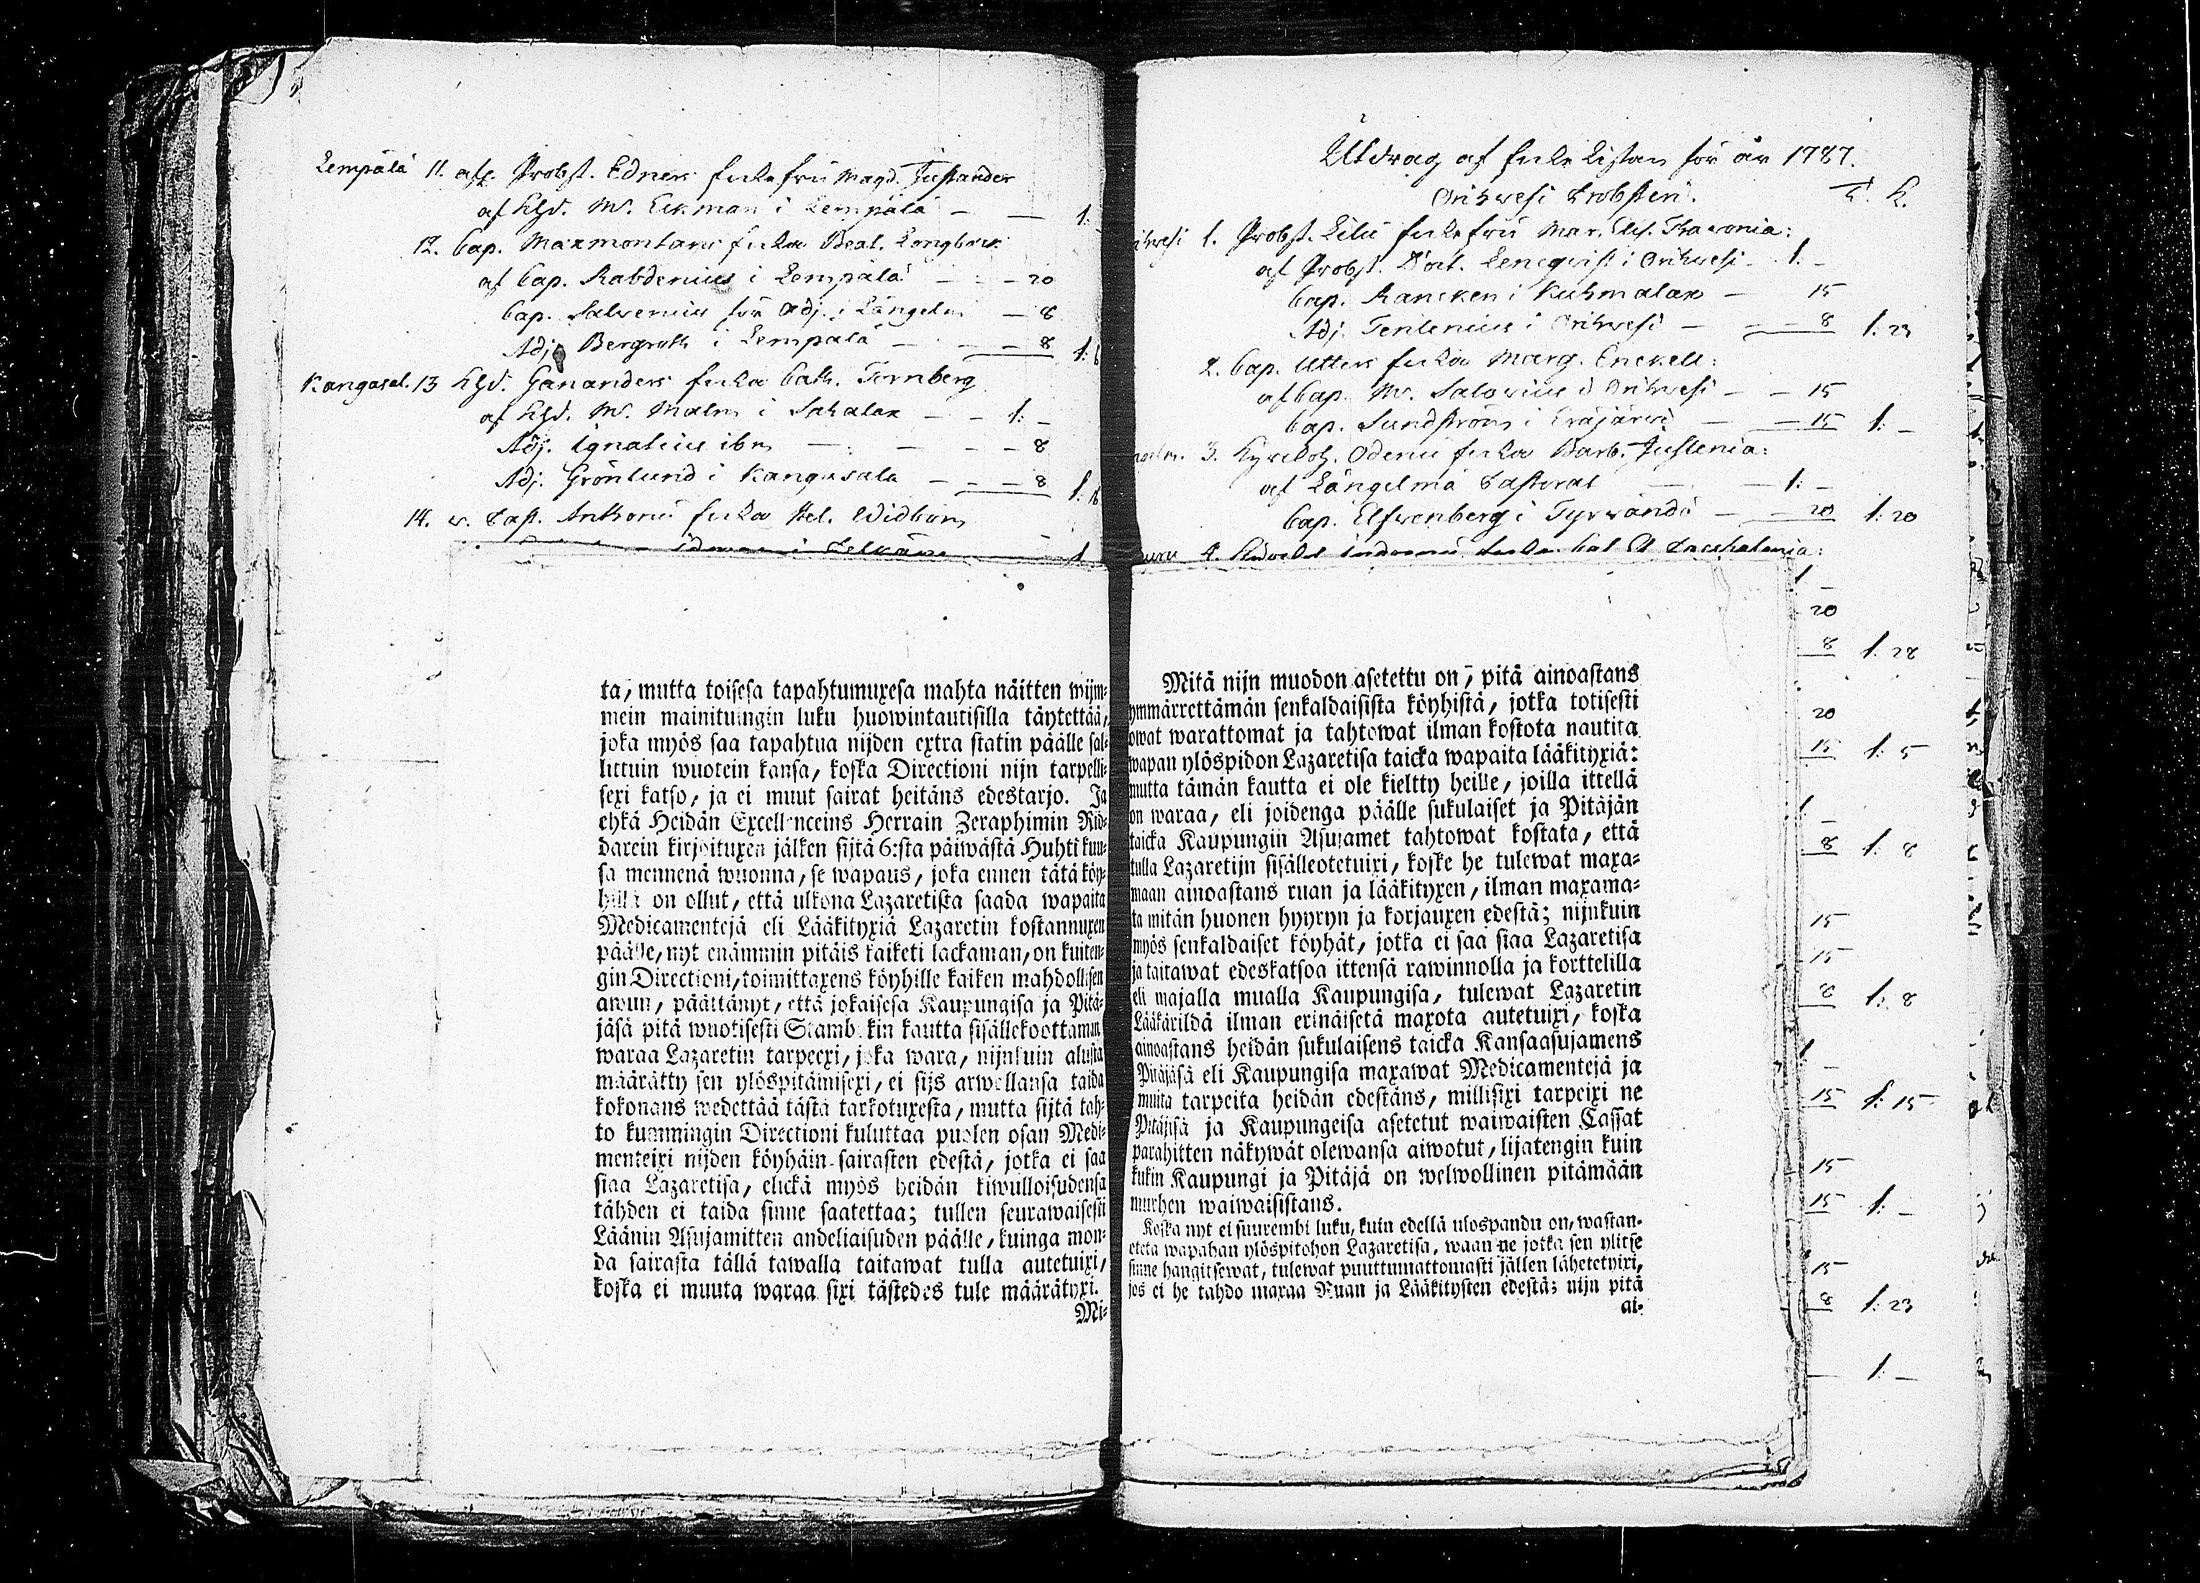 Lempälä 11. afl. Probst. Edners enkefru Magd. Justander
af Khd. M. Eckman i Lempälä — — 1:
12. Cap. Maxmontans enka Beat. Longberg
af Cap. Rabdenius i Lempälä — — 20
Cap. Salvenius för Adj. i Längelm — 8
Adj. Bergroth i Lempälä — — 8 1:
Kangasal. 13 Khd. Gananders enka Cath. Ternberg
af Khd. M. Malm i Sahalax — — 1: —
Adj. Ignatius ibm — — — 8
Adj. Grönlund i Kangasala — — 8 1: 16
14. v. Past. Anthonii enka Hel. Widbom
i Pelkäne — 1
ta, mutta toisesa tapahtumuxesa mahta näitten wijm-
mein mainituingin luku huowintautisilla täytettää,
joka myös saa tapahtua nijden extra statin päälle sal-
littuin wuotein kansa, koska Directioni nijn tarpelli-
sexi katso, ja ei muut sairat heitäns edestarjo. Ja
ehkä Heidän Excellenceins Herrain Zeraphimin Rid-
darein kirjoituxen jälken sijtä 6:sta päiwästä Huhti kuu-
sa mennenä wuonna, se wapaus, joka ennen tätä köy-
hillä on ollut, että ulkona Lazaretista saada wapaita
Medicamentejä eli Lääkityxiä Lazaretin kostannuxen
päälle, nyt enämmin pitäis kaiketi lackaman, on kuiten-
gin Directioni, toimittaxens köyhille kaiken mahdollisen
awun, päättänyt, että jokaisesa Kaupungisa ja Pitä-
jäsä pitä wuotisesti Stambokin kautta sisällekoottaman
waraa Lazaretin tarpeexi, joka wara, nijnkuin alusta
määrätty sen ylöspitämisexi, ei sijs arwollansa taida
kokonans wedettää tästä tarkotuxesta, mutta sijtä tah-
to kummingin Directioni kuluttaa puolen osan Medi-
menteixi nijden köyhäin sairasten edestä, jotka ei saa
siaa Lazaretisa, elickä myös heidän kiwulloisudensa
tähden ei taida sinne saatettaa; tullen seurawaisesti
Läänin Asujamitten andeliaisuden päälle, kuinga mon-
da sairasta tällä tawalla taitawat tulla autetuixi,
koska ei muuta waraa sixi tästedes tule määrätyxi.
Mi-
Utdrag af Enke Listan för år 1787.
Orihvesi Probsteri. T. K.
1. Probst. Lilii enkefru Mar. Elis. Fravonia:
af Probst. Doct. Lencqvist i Orihvesi — 1: —
Cap. Rancken i Kuhmalax — 15
Adj. Terilenius i Orihvesi — — 8 1: 23
2. Cap. Utters enka Marg. Enckell:
af Cap. M. Salovius i Orihvesi — — 15
Cap. Sundström i Eräjärvi — — 15 1: —
3. Kyrckoh. Odenii enka Barb. Justenia:
af Längelmä Pastorat — 1: —
Cap. Elfvenberg i Tyrvändö — — 20 1: 20
4.
1 —
20
8 1: 28
20
15 1: 5
1 —
8 1: 8
15
15
8 1: 8
1 —
15 1: 15
15
15 1: —
15
8 1: 23
— 1: —
Mitä nijn muodon asetettu on, pitä ainoastans
ymmärrettämän senkaldaisista köyhistä, jotka totisesti
owat warattomat ja tahtowat ilman kostota nautita
wapan ylöspidon Lazaretisa taicka wapaita lääkityxiä:
mutta tämän kautta ei ole kieltty heille, joilla ittellä
on waraa, eli joidenga päälle sukulaiset ja Pitäjän
taicka Kaupungin Asujamet tahtowat kostata, että
tulla Lazaretijn sisälleotetuixi, koske he tulewat maxa-
maan ainoastans ruan ja lääkityxen, ilman maxama-
ta mitän huonen hyyryn ja korjauxen edestä; nijnkuin
myös senkaldaiset köyhät, jotka ei saa siaa Lazaretisa
ja taitawat edeskatsoa ittensä rawinnolla ja korttelilla
eli majalla mualla Kaupungisa, tulewat Lazaretin
Lääkärildä ilman erinäisetä maxota autetuixi, koska
ainoastans heidän sukulaisens taicka Kansaasujamens
Pitäjäsä eli Kaupungisa maxawat Medicamentejä ja
muita tarpeita heidän edestäns, millisixi tarpeixi ne
Pitäjisä ja Kaupungeisa asetetut waiwaisten Cassat
parahitten näkywät olewansa aiwotut, lijatengin kuin
kukin Kaupungi ja Pitäjä on welwollinen pitämään
murhen waiwaisistans.
Koska nyt ei suurembi luku, kuin edellä ulospandu on, wastan-
oteta wapahan ylöspitohon Lazaretisa, waan ne jotka sen ylitse
sinne hangitsewat, tulewat puuttumattomasti jällen lähetetyixi,
jos ei he tahdo maxaa Ruan ja Lääkitysten edestä; nijn pitä
ai-